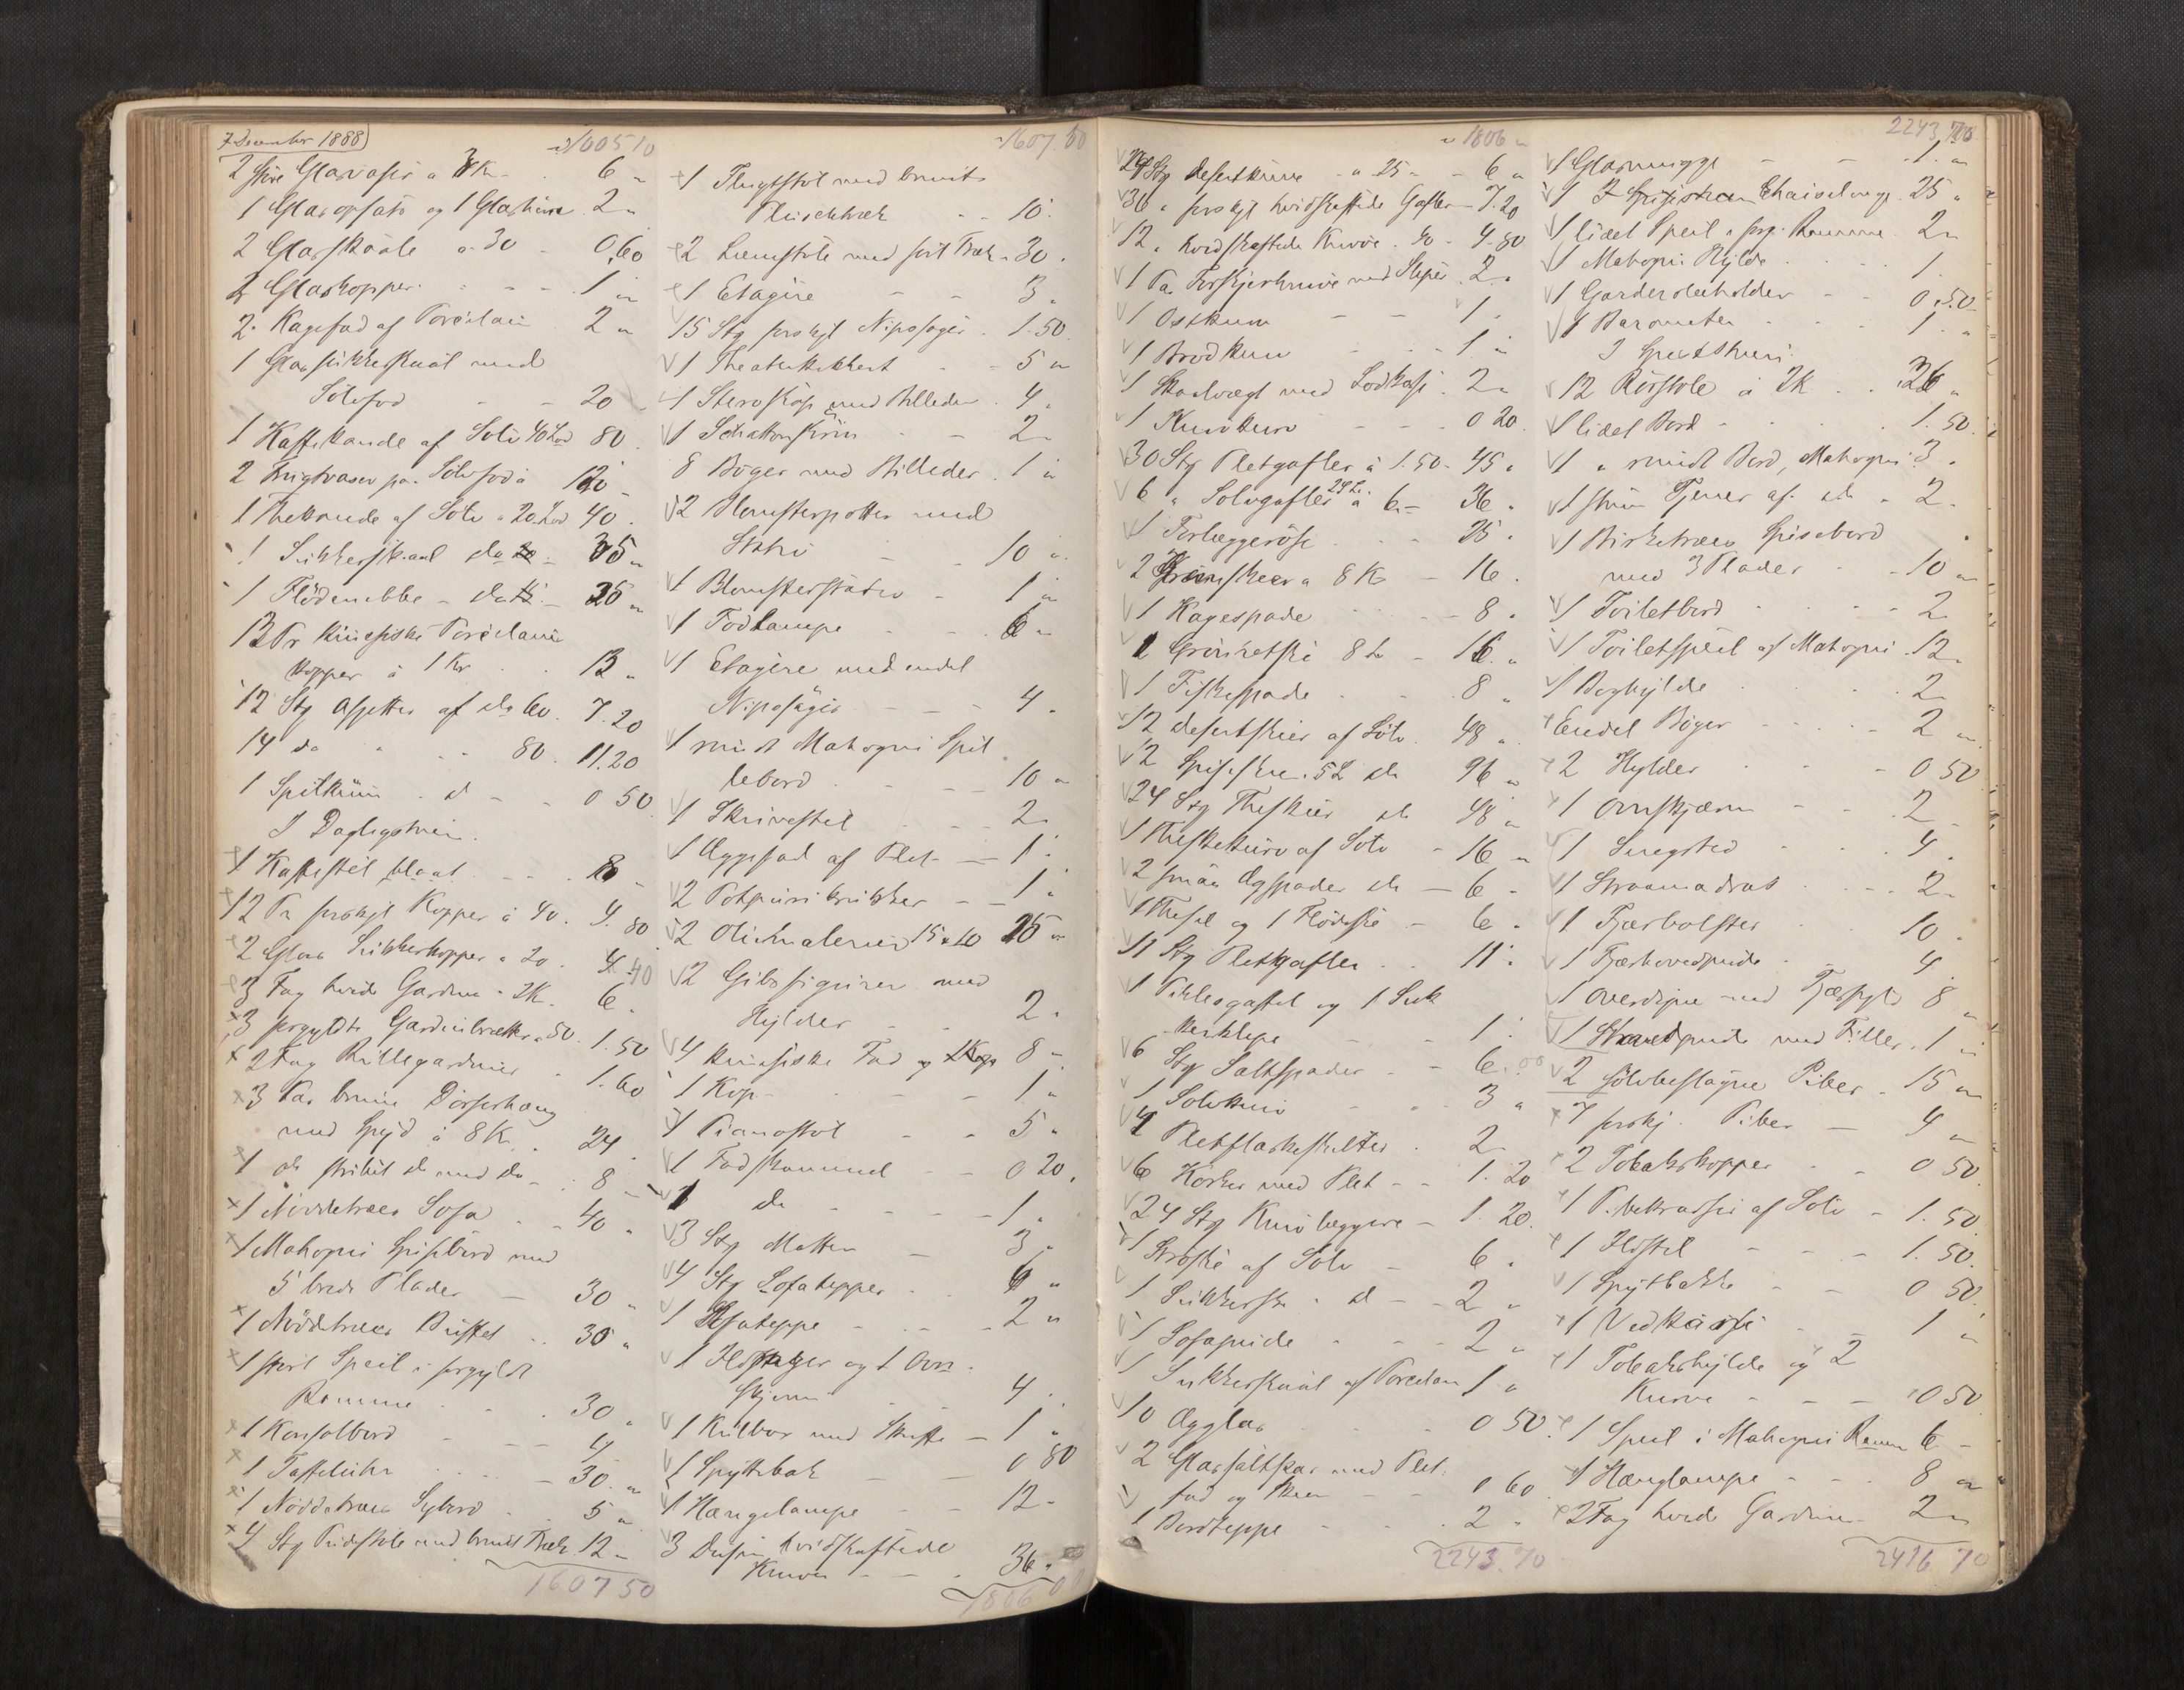 7 December 1888
100510
2 större Glasvaser a 3 Kr - 6 "
1 Glasopsats og 1 Glaskurv 2 "
2 Glasskaale a 30 - 0,60
2 Glaskopper - - 1 "
2 Kagefad af Porcelain 2 "
1 Glassukkerskaal med
Sölvfod - - 20 -
1 Kaffekande af Sölv 40 Lod 80
2 Frugtvaser paa Sölvfod a
1 Thekande af Sölv a 20 Lod 40
1 Sukkerskaal do - 35 "
1 Flödemukke - do - 25 "
13 Pr kinesiske Porcelains
Kopper à 1 Kr - 13 "
12 Stg Assjetter af do 60. 7.20
14 do " - 80. 11.20
1 Spilkum - d - - 0 50
I Dagligstuen.
1 Kaffestel blaat - - 8 -
12 Pr forskjl Kopper à 40. 4.80
2 Glas Sukkerkopper a 20. 40
3 Fag hvide Gardiner a 2K. 6 "
3 forgyldte Gardinbrætter a 50. 1.50
2 Fag Rullegardiner - 1.60
3 Par brune Dörforhæng
med Spyd à 8 K. 24
1 do stribet do med do - 8 -
1 Nöddetræes Sofa - 40 "
1 Mahogni Spisebord med
5 brede Plader - 30 "
1 Nöddetræes Buffet - 30 "
1 stort Speil i forgyldt
Ramme - - 30 "
1 Konsolbord - - 4
1 Taffeluhr - - 30 "
1 Nöddetræes Sybord - 5 "
4 Stg Pudestole med brunt Træk 12 "
1607 50
1607.50
1 Flugtstol med brunt
Plüschtræk - - 10.
2 Lænestole med sort Træk - 30.
1 Etagère - - 3 "
15 Stg forskjl Nipssager. 1.50
1 Theaterkikkert - - 5 "
1 Steroskop med Billeder. 4 "
1 Schattouskrin - - 2 "
8 Böger med Billeder. 1 "
2 Blomsterpotter med
Stativ - 10 "
1 Blomsterstativ - 1 "
1 Fodlampe - - 6 "
1 Etagère med endel
Nipssager - - 4 "
1 rundt Mahogni Spil
lebord - - 10 "
1 Skrivestel - - 2 "
1 Æggefad af Plet - 1 "
2 Potpuri krukker - 1 "
2 Oliemalerier 15 & 10 25 "
2 Gibsfigurer med
Hylder - - 2 "
4 kinesiske Fad og 8 -
1 Kop - - 1 "
1 Pianostol - - 5 "
1 Fodskammel - - 0 20.
1 do - - - 1 "
3 Stg Matter - 3 "
4 Stg Sofatepper - 6 "
1 Sofateppe - - 2 "
1 og 1 Ovn
skjerm - - 4
1 Kulbox med Skuffe - 1 "
1 Spyttebak - - 0 80
1 Hængelampe - 12 -
3 Dusin hvidskaftede
Knive - - 36 "
1806
1806 "
24 Stg desertknive a 25 - - 6 "
36 " forskjl hvidskaftede Gafler - 7.20
12 " hvidskaftede Knive. 40 - 4.80
1 Par Forskjerknive med Sliper. 2 "
1 Ostkurv - - 1 "
1 Brödkurv - - 1 "
1 Skaalvægt med Lodkasse. 2 "
1 Knivkurv - - 0 20
30 Stg Pletgafler à 1.50 - 45 "
6 " Sölvgafler à 6 - 36 "
1 Forlæggeröse - - 25 "
2 a 8 K - 16.
1 Kagespade - - 8 "
1 Grönketske 8 L - 16 "
1 Fiskespade - - 8 "
12 desertskeer af Sölv. 48 "
12 Spiseskeer. 5 L do 96 "
24 Stg Theskeer do 48 "
1 Theskekurv af Sölv - 16 "
2 smaa Ægspader do - 6 -
1 Thesil og 1 Flödeske - 6 "
11 Stg Pletgafler - - 11 "
1 Piklesgaffel og 1 Suk
kerklype - - 1 "
6 Stg Saltspader - - 6 "
1 Sölvkniv - - 3 "
4 Pletflaskeskilter. 2
6 Korker med Plet - - 1.20
24 Stg Knivlæggere - 1 20.
1 Ströske af Sölv - 6 "
1 Sukkerske - do - - 2 "
1 Sofapude - - - 2 "
1 Sukkerskaal af Porcelan 1 "
10 Ægglas - - 0 50.
2 Glassaltkar med Plet.
fad og Skeer - 0 60
1 Bordteppe - - 2 "
2243.70
2243,70
1 Glasmugge - - 1 "
1 Chaiselong. 25 "
1 lidet Speil i forg. Ramme. 2 "
1 Mahogni Hylde - - 1.
1 Garderobeholder - - 0.50
1 Barometer - - 1 "
I Spisestuen.
12 Rörstole à 3K - - 36 "
1 lidet Bord - - 1.50.
1 " rundt Bord, Mahogni 3 "
1 stum Tjener af do - 2.
1 Birketræes Spisebord
med 3 Plader - - 10 "
1 Toiletbord - - 2
1 Toiletspeil af Mahogni. 12 "
1 Boghylde - - 2
Endel Böger - - 2 "
2 Hylder - - 0 50
1 Ovnskjærm - - 2
1 Sengsted - - 4.
1 Straamadras - - 2 "
1 Fjærbolster - 10.
1 Fjærhovedpude - 4
1 Overdyne med Fjærfyld 8
1 med Filler. 1 "
2 sölvbeslagne Piber - 15 "
7 forskj. Piber - 4 "
2 Tobakskopper - - 0 50
1 af Sölv - 1.50
1 Ildstel - - - 1.50.
1 Spytbakke - - 0 50
1 Vedkasse - - 1 "
1 Tobakshylde og 2
Kurve - - 0 50
1 Speil i Mahogni Ramme 6 -
1 Hænglampe - - 8 "
2 Fag hvide Gardiner 2 "
2416 70